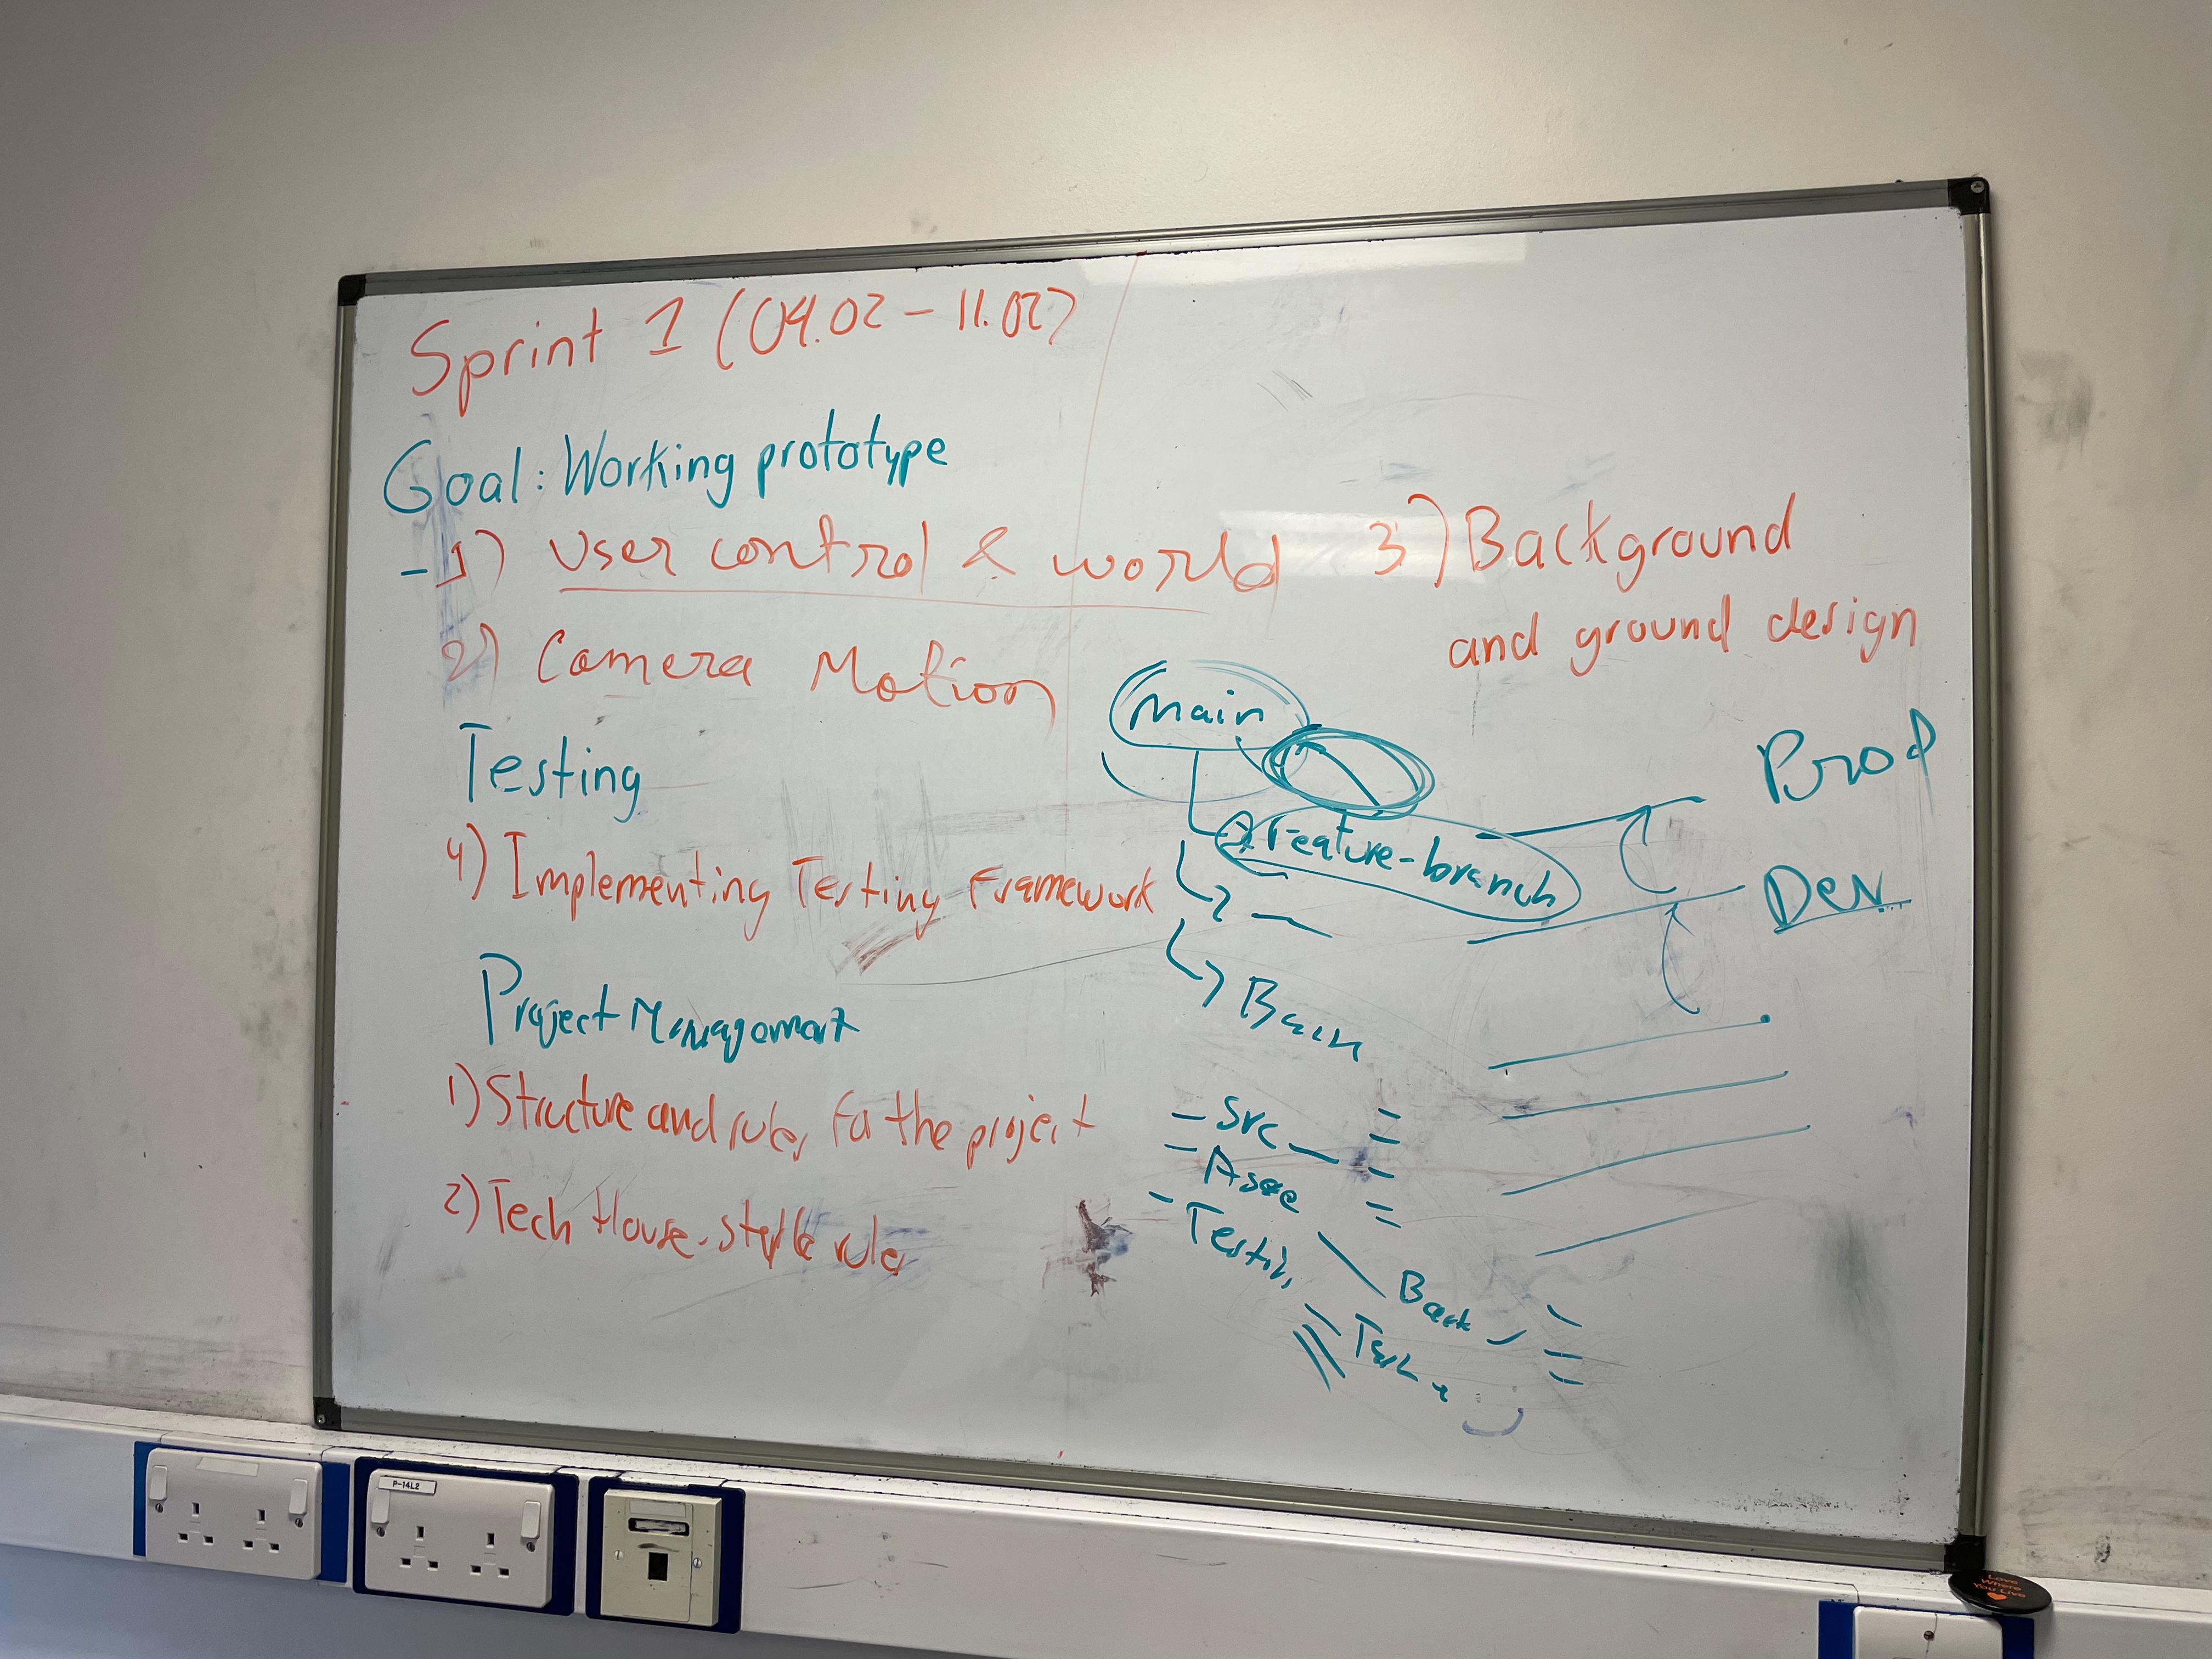 Sprint 1 (04.02 - 11.02)
Goal: Working prototype
- 1) User control & world
2) Camera Motion
3) Background
and ground design
Testing
4) Implementing Testing Framework
Project Management
1) Structure and rules for the project
2) Tech House-style rules
Main
Feature-branch
Prod
Dev
- Src
- Asse
- Testin
Back
Test
P-14L2
Love
Where
You Live